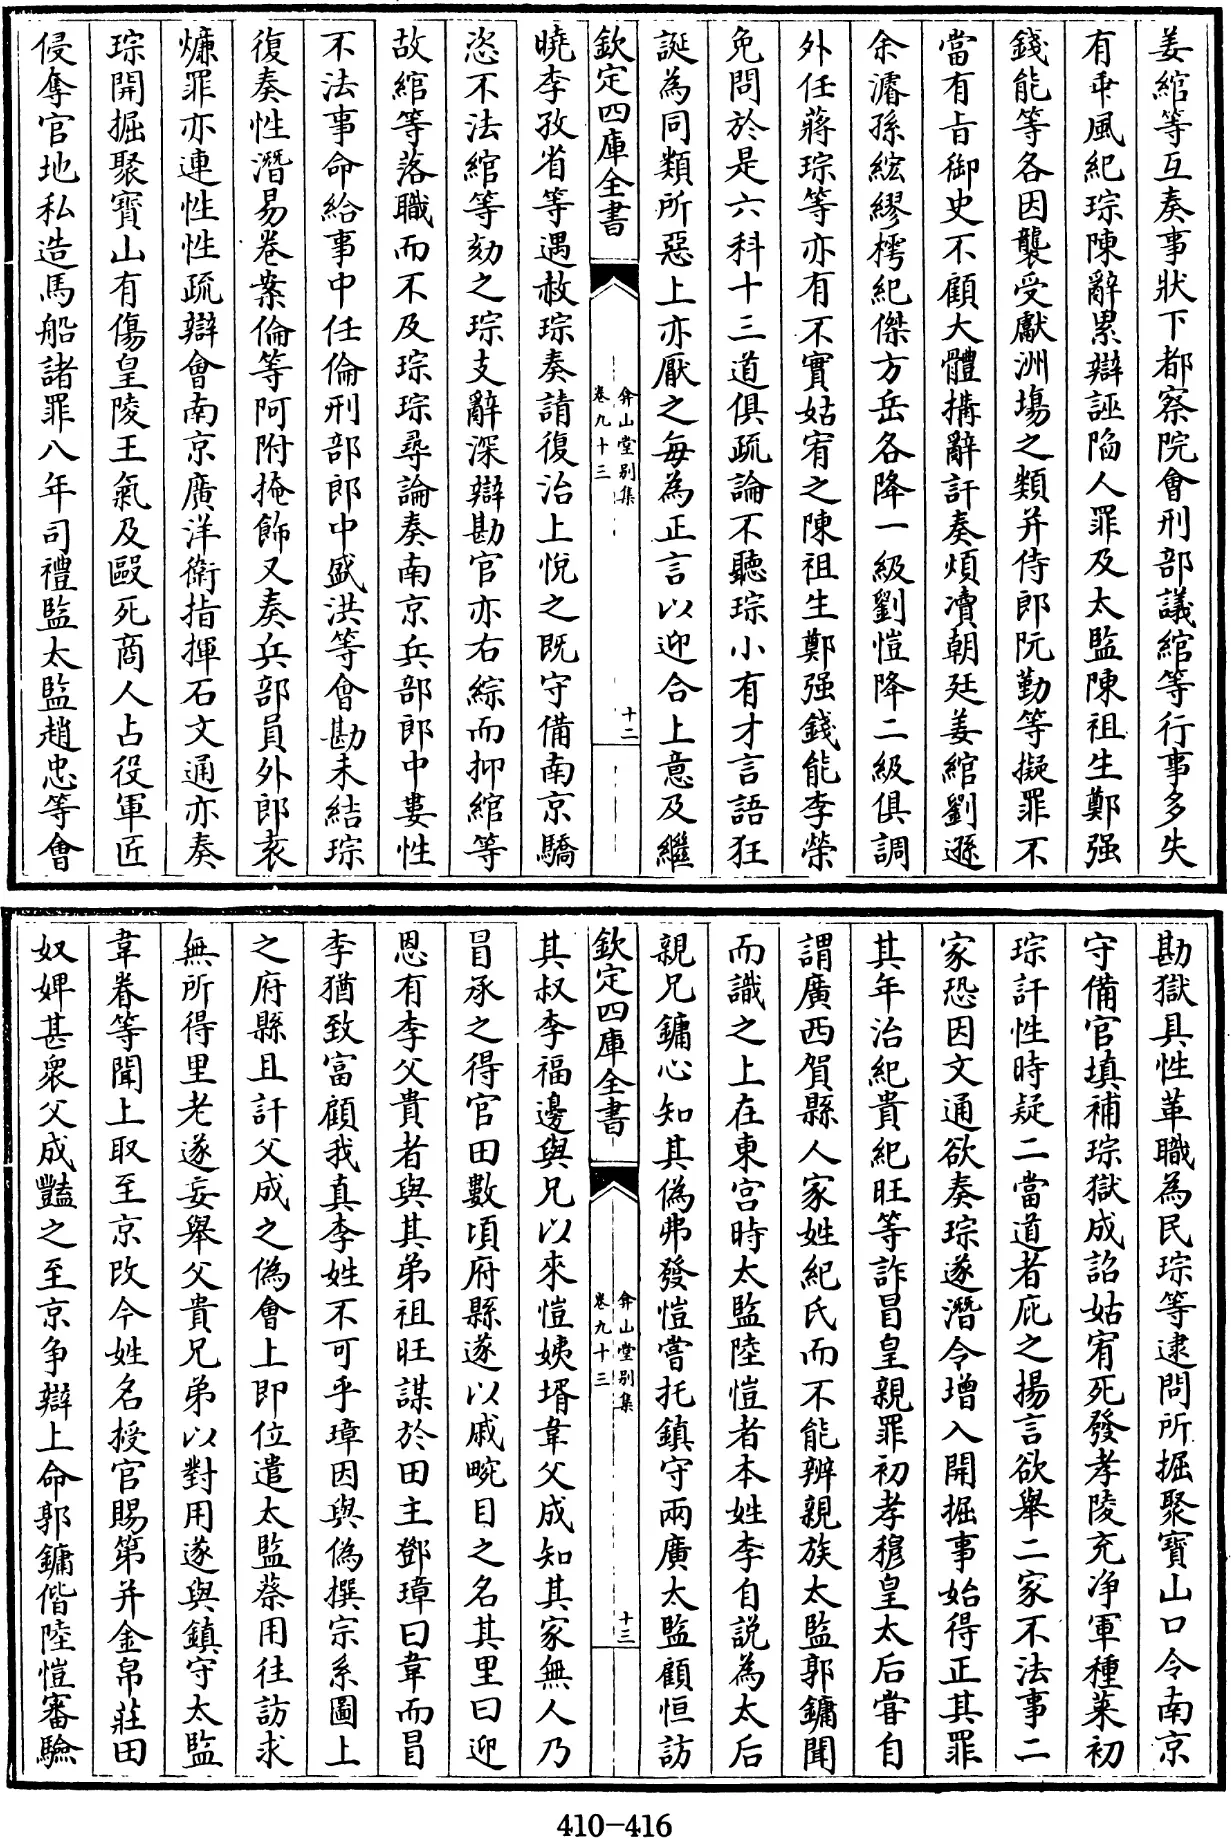 姜綰等互奏事狀下都察院會刑部議綰等行事多失
有乖風紀琮陳辭累辯誣陷人罪及太監陳祖生鄭强
錢能等各因襲受獻洲塲之類并侍郎阮勤等擬罪不
當有旨御史不顧大體搆辭訐奏煩瀆朝廷姜綰劉遜
余濬孫紘繆樗紀傑方岳各降一級劉愷降二級俱調
外任蔣琮等亦有不實姑宥之陳祖生鄭强錢能李榮
免問於是六科十三道俱疏論不聽琮小有才言語狂
誕為同類所惡上亦厭之每為正言以迎合上意及繼
欽定四庫全書
弇山堂别集
卷九十三
十二
曉李孜省等遇赦琮奏請復治上悅之既守備南京驕
恣不法綰等劾之琮支辭深辯勘官亦右綜而抑綰等
故綰等落職而不及琮琮尋論奏南京兵部郎中婁性
不法事命給事中任倫刑部郎中盛洪等會勘未結琮
復奏性潛易卷案倫等阿附掩飾又奏兵部員外郎袁
熑罪亦連性性疏辯會南京廣洋衛指揮石文通亦奏
琮開掘聚寶山有傷皇陵王氣及毆死商人占役軍匠
侵奪官地私造馬船諸罪八年司禮監太監趙忠等會
勘獄具性革職為民琮等逮問所掘聚寶山口令南京
守備官填補琮獄成詔姑宥死發孝陵充净軍種菜初
琮訐性時疑二當道者庇之揚言欲舉二家不法事二
家恐因文通欲奏琮遂潛令增入開掘事始得正其罪
其年治紀貴紀旺等詐冒皇親罪初孝穆皇太后甞自
謂廣西賀縣人家姓紀氏而不能辨親族太監郭鏞聞
而識之上在東宫時太監陸愷者本姓李自説為太后
親兄鏞心知其偽弗發愷嘗托鎮守兩廣太監顧恒訪
欽定四庫全書
弇山堂别集
卷九十三
十三
其叔李福邊與兄以來愷姨壻韋父成知其家無人乃
冒承之得官田數頃府縣遂以戚畹目之名其里曰迎
恩有李父貴者與其弟祖旺謀於田主鄧璋曰韋而冒
李猶致富顧我真李姓不可乎璋因與偽撰宗系圖上
之府縣且訐父成之偽會上即位遣太監蔡用往訪求
無所得里老遂妄舉父貴兄弟以對用遂與鎮守太監
韋眷等聞上取至京改今姓名授官賜第并金帛莊田
奴婢甚衆父成豔之至京争辯上命郭鏞偕陸愷審驗
410-416